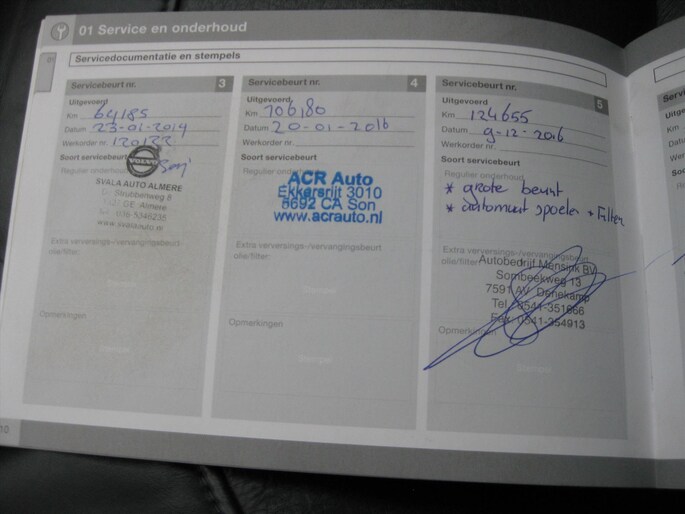 01 Service en onderhoud
Servicedocumentatie en stempels
Servicebeurt nr. 3
Uitgevoerd
Km 64185
Datum 23-01-2014
Werkorder nr. 120122
Soort servicebeurt
Regulier onderhoud
VOLVO
SVALA AUTO ALMERE
Strubbenweg 8
GE Almere
Tel. 036 5348235
www.svalaauto.nl
Extra verversings-/vervangingsbeurt
olie/filter:
Stempel
Opmerkingen
Stempel
Servicebeurt nr. 4
Uitgevoerd
Km 106180
Datum 20-01-2016
Werkorder nr.
Soort servicebeurt
Regulier onderhoud
ACR Auto
Ekkersrijt 3010
5692 CA Son
www.acrauto.nl
Extra verversings-/vervangingsbeurt
olie/filter:
Stempel
Opmerkingen
Stempel
Servicebeurt nr. 5
Uitgevoerd
Km 124655
Datum 9-12-2016
Werkorder nr.
Soort servicebeurt
Regulier onderhoud
* grote beurt
* automaat spoelen + Filter
Extra verversings-/vervangingsbeurt
olie/filter:
Autobedrijf Mensink BV
Sombeekweg 13
7591 AV Denekamp
Tel. 0541-351666
Fax. 0541-354913
Opmerkingen
Stempel
10